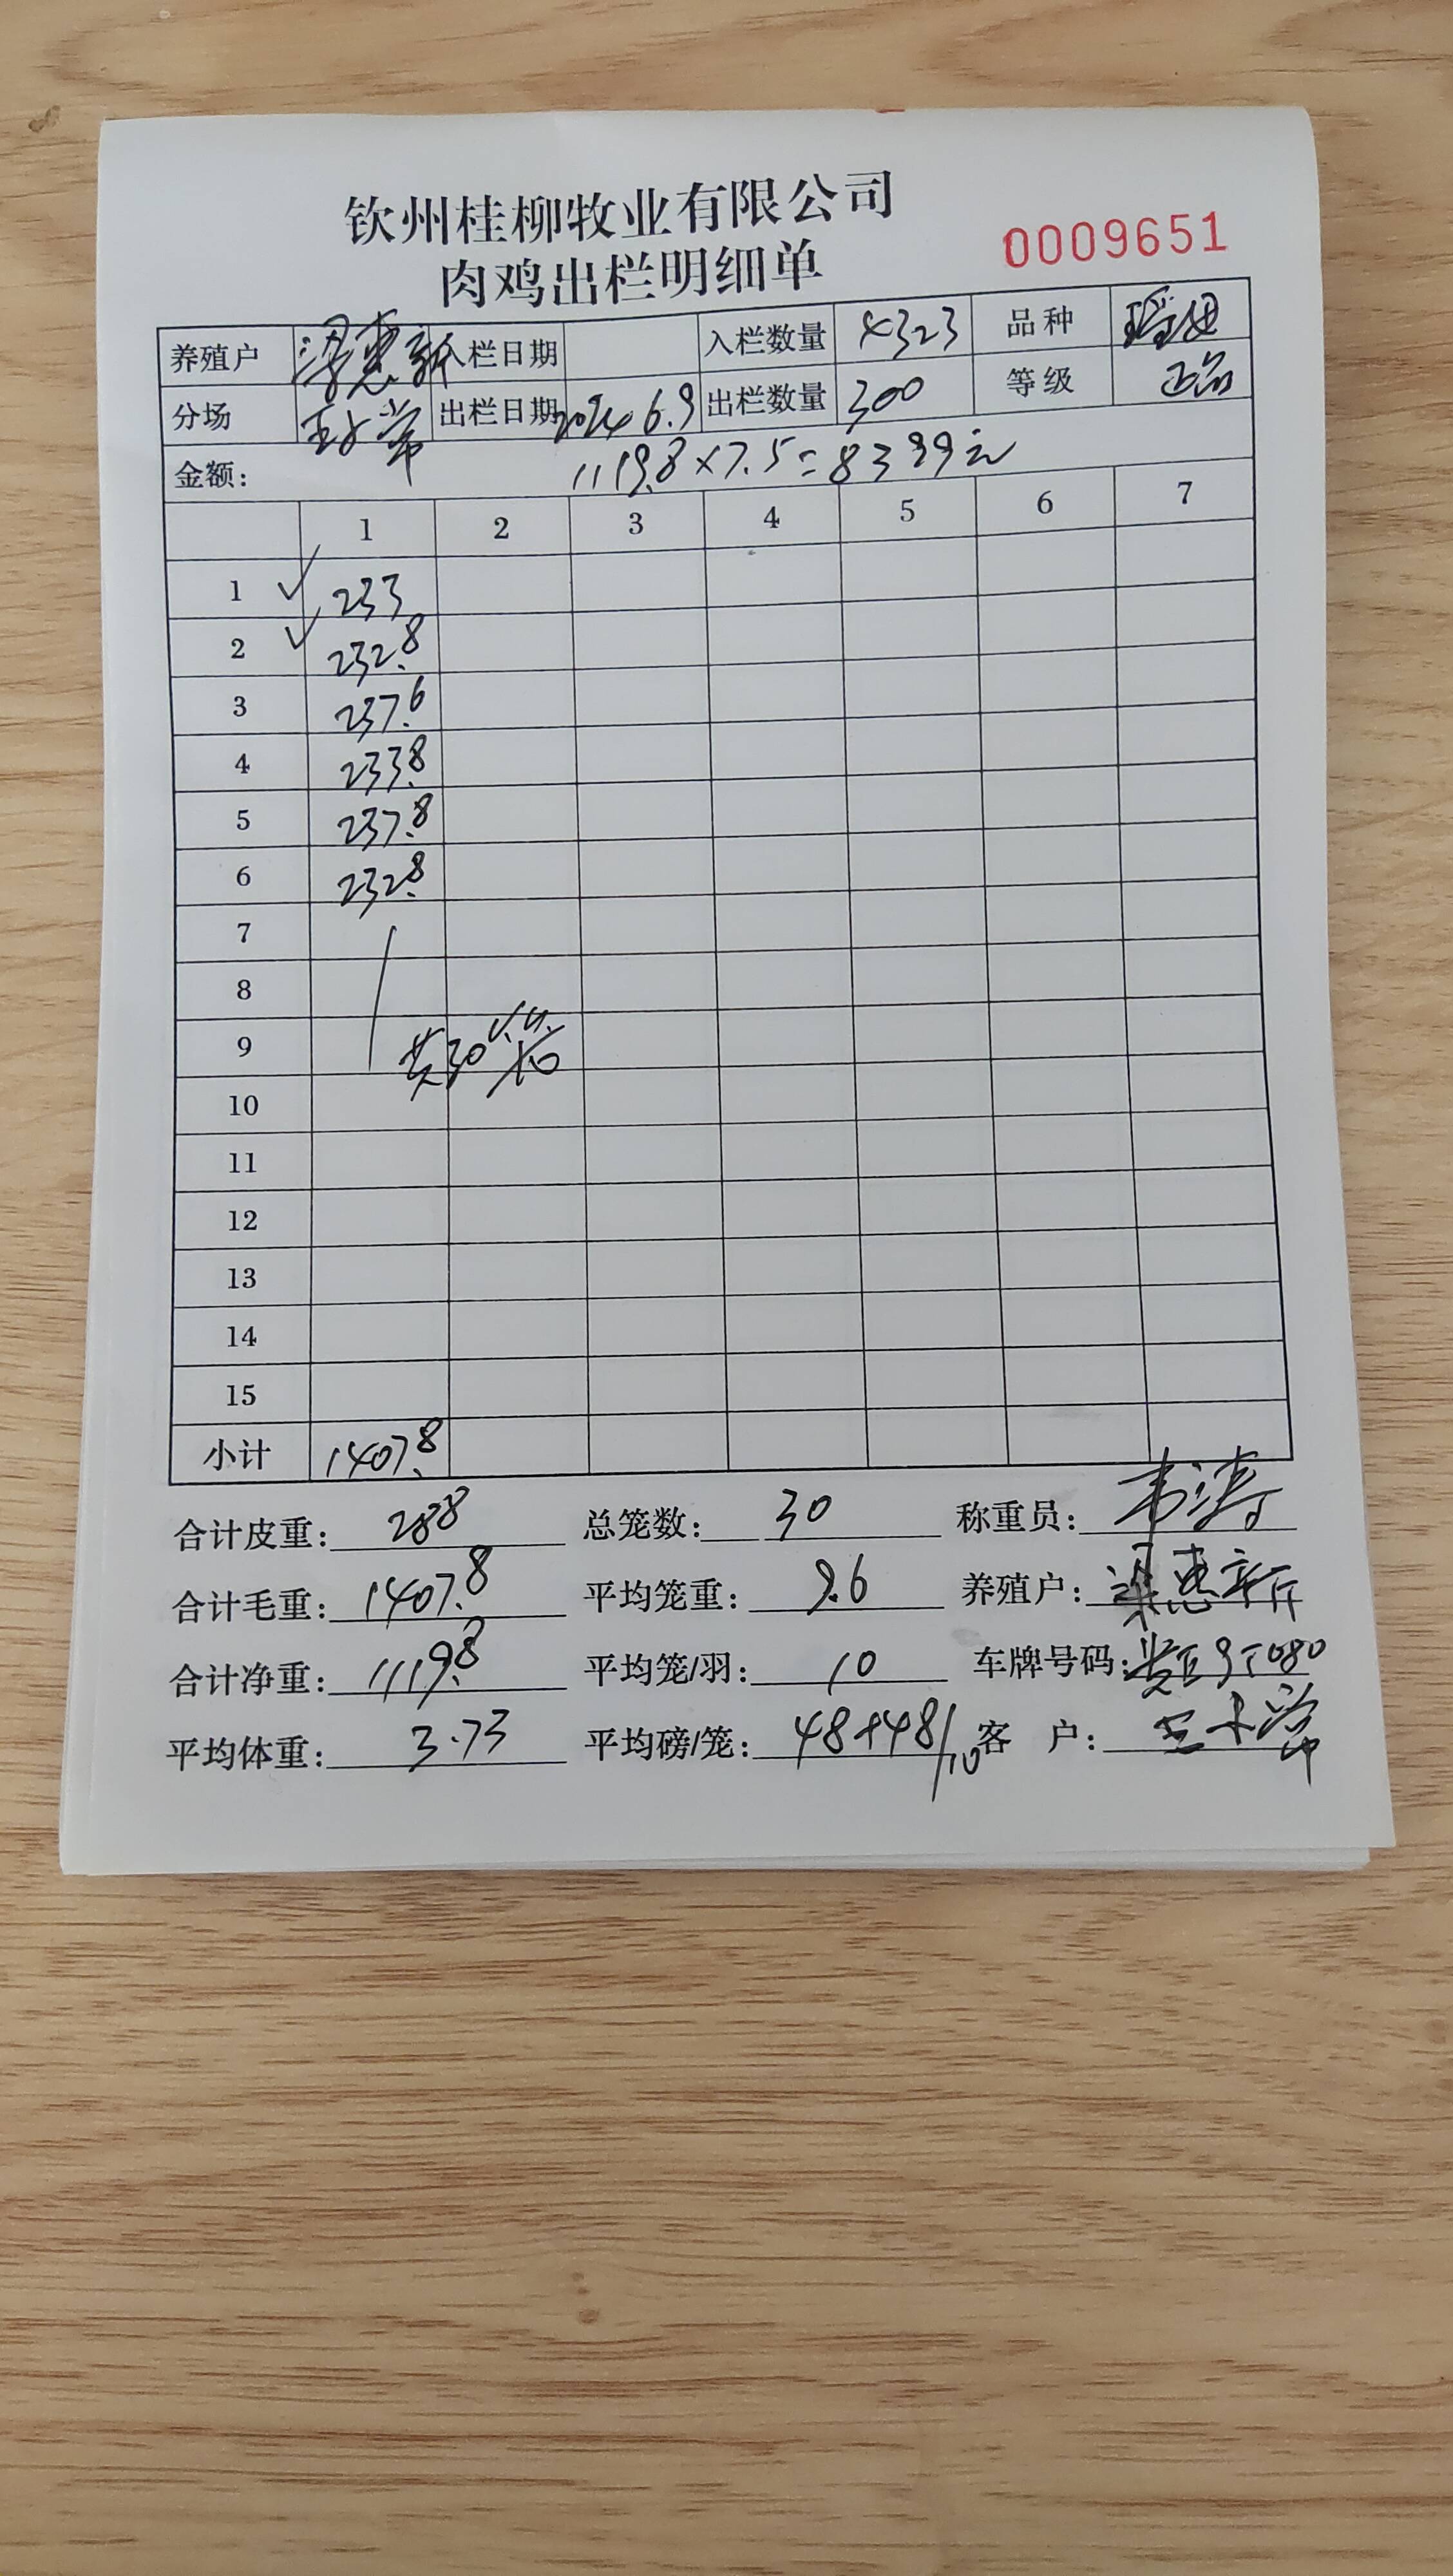 钦州桂柳牧业有限公司
肉鸡出栏明细单
0009651
养殖户 梁惠新 入栏日期 入栏数量 4323 品种 瑶进
分场 出栏日期 2024 6.9 出栏数量 300 等级 正品
金额: 1119.8×7.5=8399元
1 2 3 4 5 6 7
1 ✓ 233
2 ✓ 232.8
3 237.6
4 233.8
5 237.8
6 232.8
7
8
9 共30
10
11
12
13
14
15
小计 1407.8
合计皮重: 288 总笼数: 30 称重员: 韦涛
合计毛重: 1407.8 平均笼重: 9.6 养殖户: 梁惠新
合计净重: 1119.8 平均笼/羽: 10 车牌号码:
平均体重: 3.73 平均磅/笼: 48+48/10 客户: